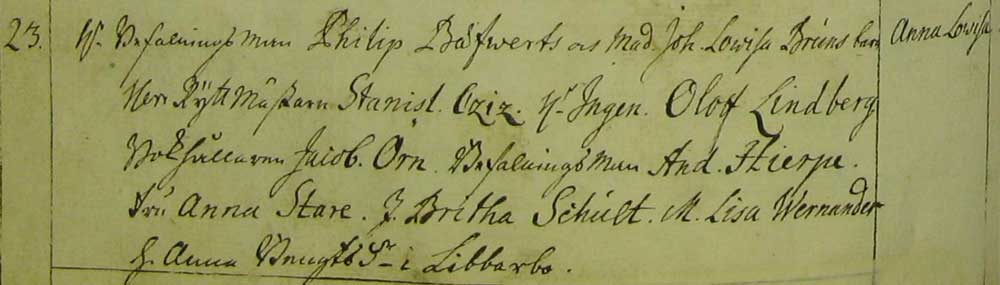 23. Hr Befalningsman Philip Bäfwerts och Mad. Joh. Lowisa Bruns barn Anna Lowisa
Herr Ryttmästaren Stanisl. Cziz. Hr Ingen. Olof Lindberg
Bokhållaren Jacob. Örn. Befalningsman And. Hierpe.
Fru Anna Stare. J. Britha Schult. M. Lisa Wernander
h. Anna Bengts Dr i Libbarbo.